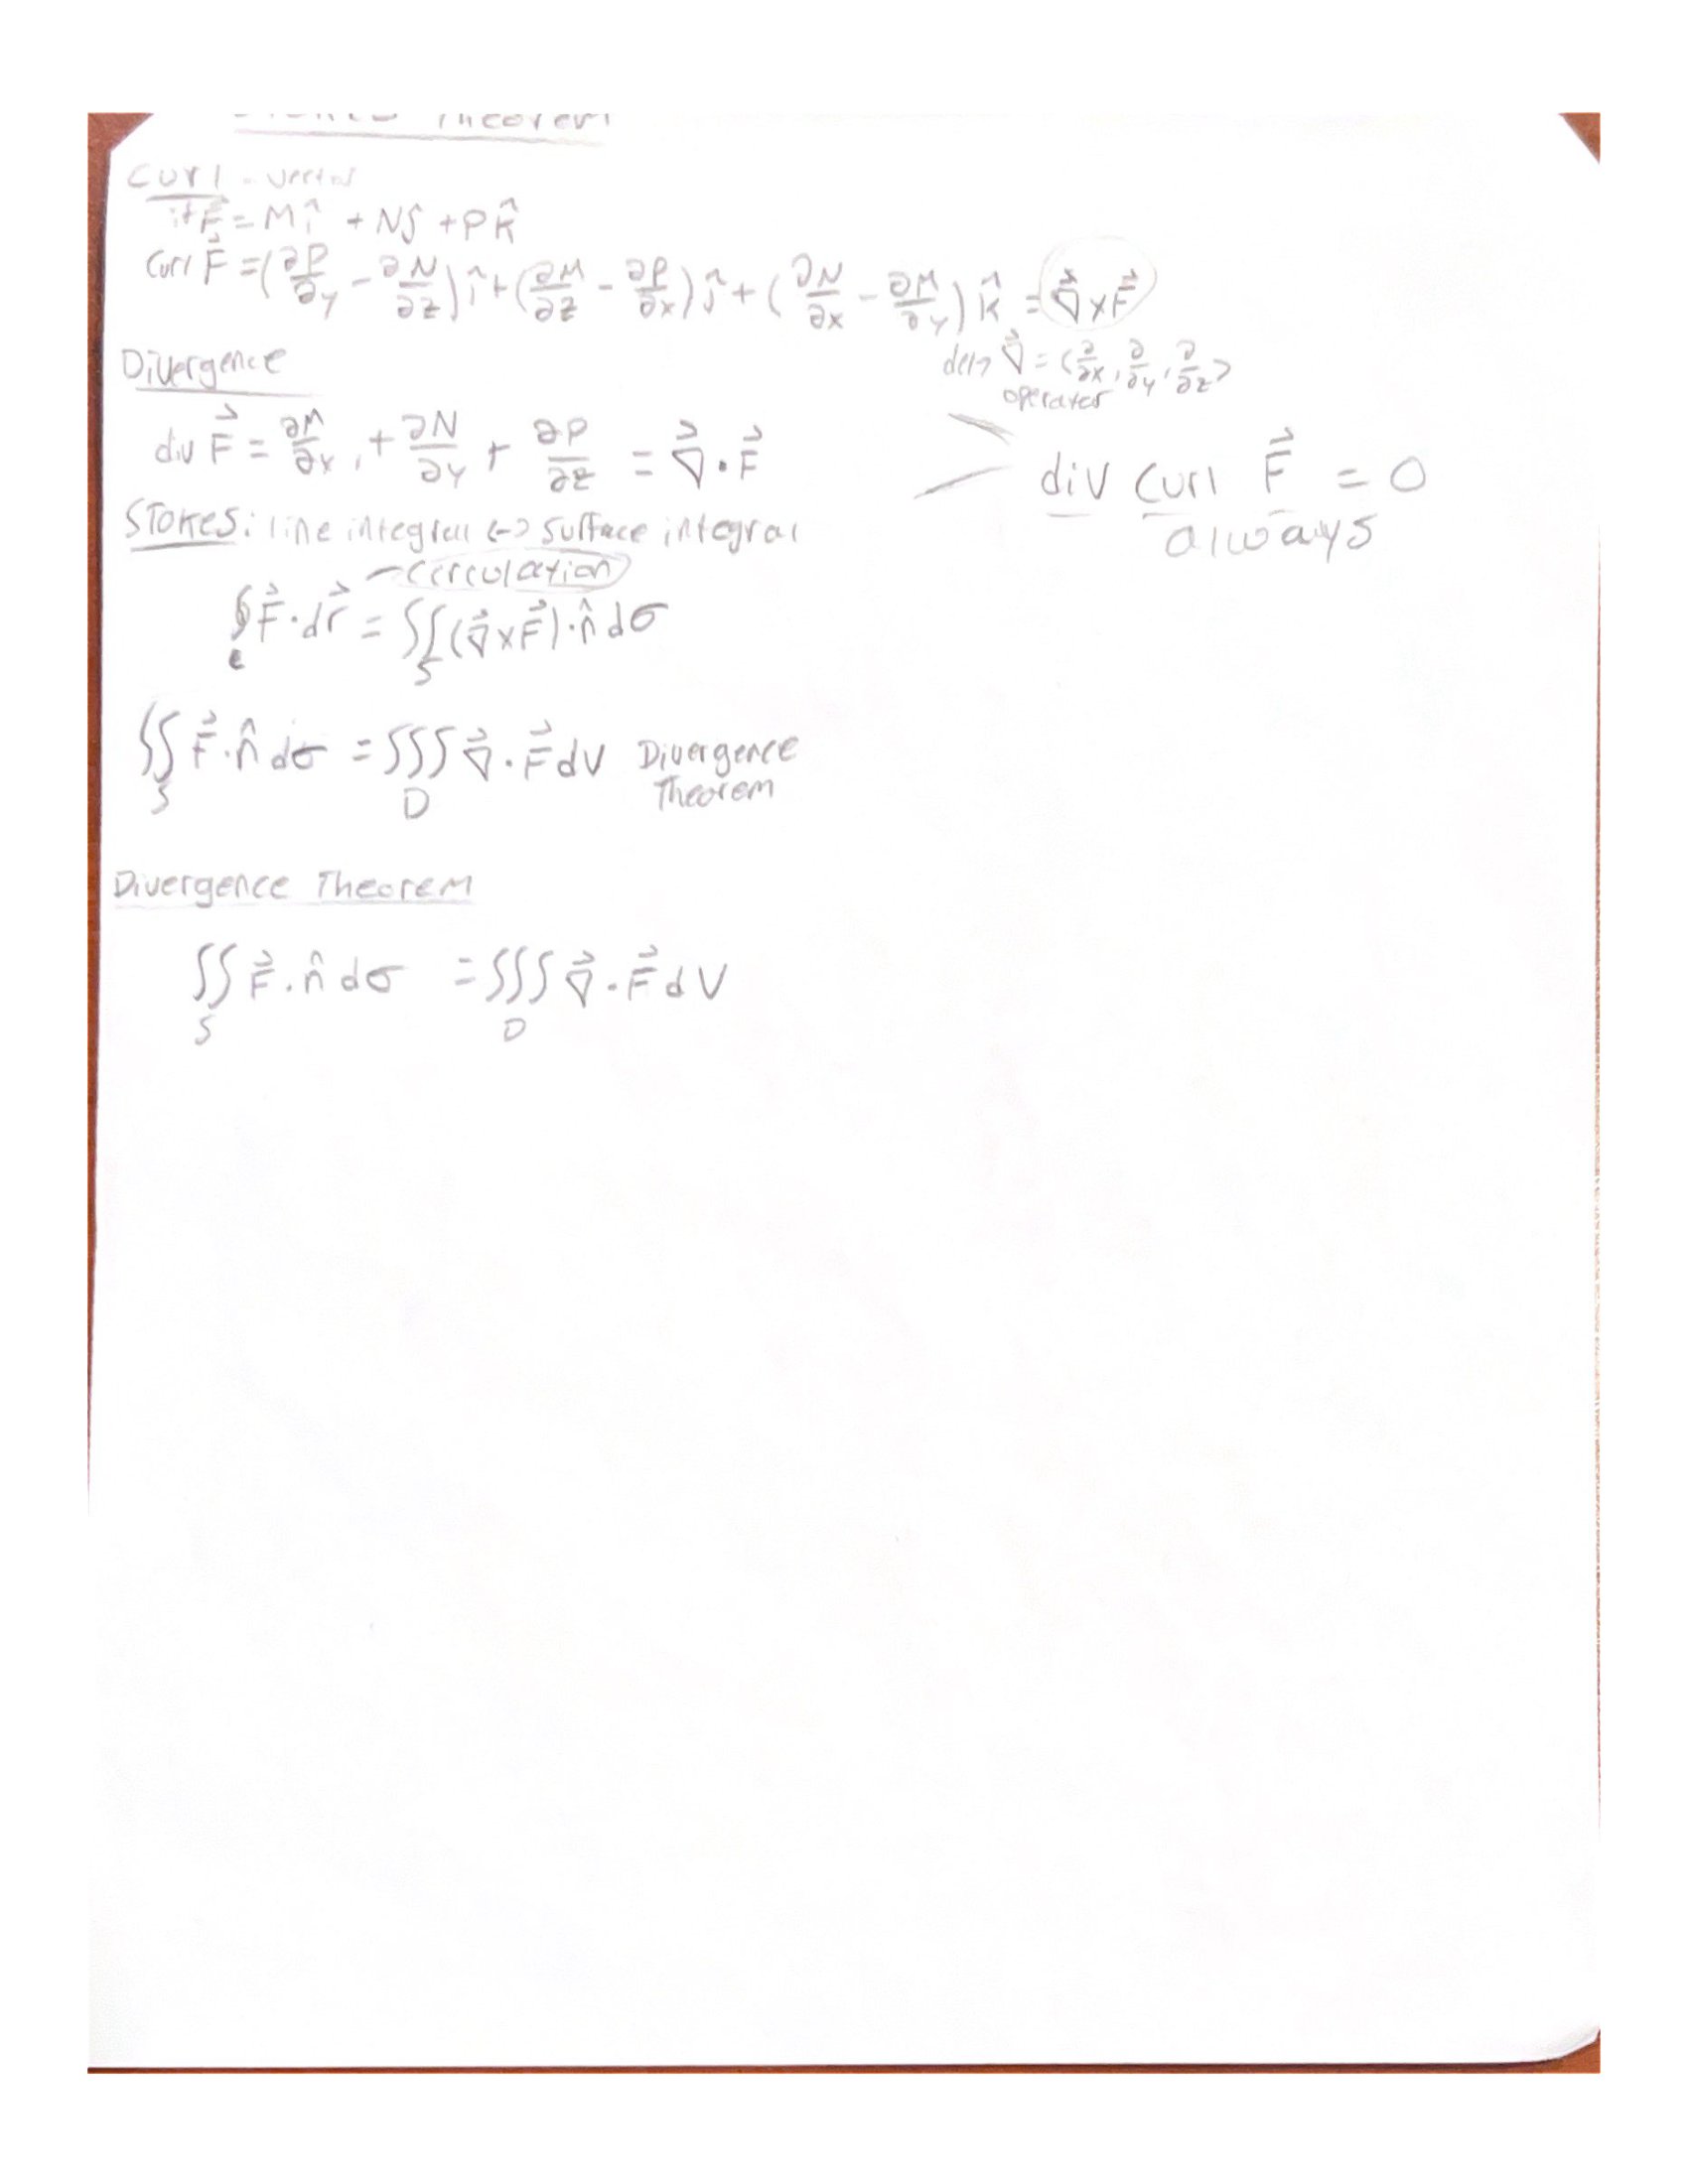 Theorem
Curl - vector
if F⃗ = Mî + Nĵ + Pk̂
Curl F⃗ = (∂P/∂y - ∂N/∂z)î + (∂M/∂z - ∂P/∂x)ĵ + (∂N/∂x - ∂M/∂y)k̂ = ∇⃗×F⃗
del → ∇⃗ = <∂/∂x, ∂/∂y, ∂/∂z>
operator
Divergence
div F⃗ = ∂M/∂x + ∂N/∂y + ∂P/∂z = ∇⃗·F⃗
div curl F⃗ = 0
always
STOKES: line integral <-> surface integral
circulation
∮_C F⃗·dr⃗ = ∬_S (∇⃗×F⃗)·n̂ dσ
∬_S F⃗·n̂ dσ = ∭_D ∇⃗·F⃗ dV Divergence
Theorem
Divergence Theorem
∬_S F⃗·n̂ dσ = ∭_D ∇⃗·F⃗ dV